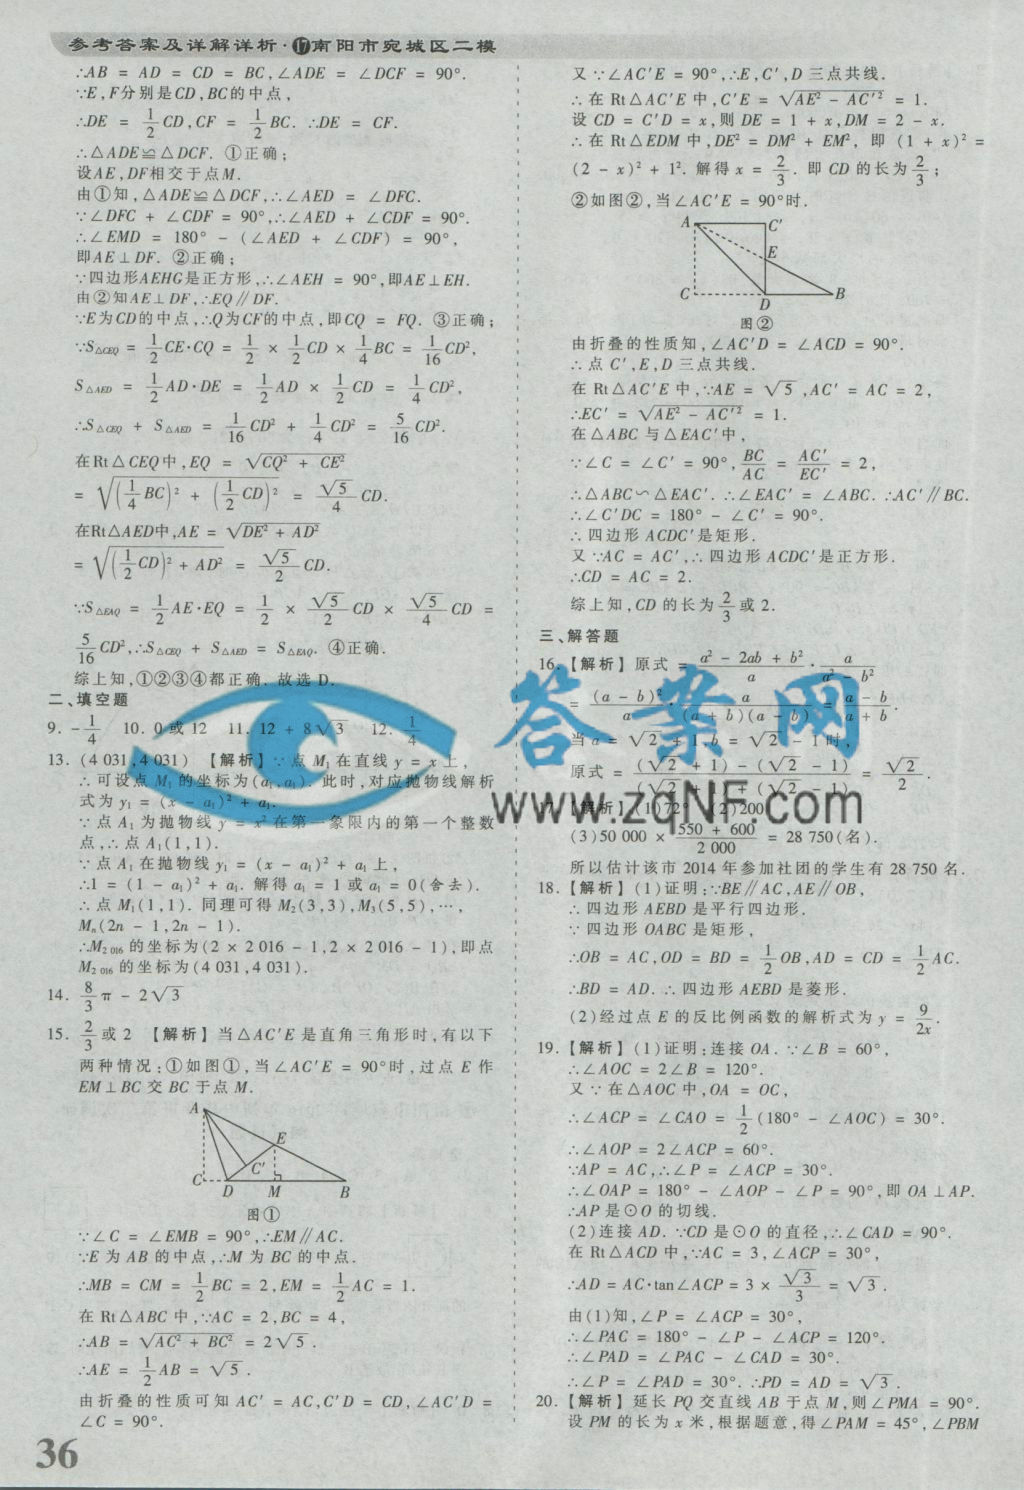 参考答案及详解详析·⑰南阳市宛城区二模
∴AB = AD = CD = BC,∠ADE = ∠DCF = 90°.
∵E,F分别是CD,BC的中点,
∴DE = 1/2 CD,CF = 1/2 BC. ∴DE = CF.
∴△ADE≌△DCF. ①正确;
设AE,DF相交于点M.
由①知,△ADE≌△DCF,∴∠AED = ∠DFC.
∵∠DFC + ∠CDF = 90°,∴∠AED + ∠CDF = 90°.
∴∠EMD = 180° - (∠AED + ∠CDF) = 90°,
即AE⊥DF. ②正确;
∵四边形AEHG是正方形,∴∠AEH = 90°,即AE⊥EH.
由②知AE⊥DF,∴EQ∥DF.
∵E为CD的中点,∴Q为CF的中点,即CQ = FQ. ③正确;
∵S△CEQ = 1/2 CE·CQ = 1/2 × 1/2 CD × 1/4 BC = 1/16 CD²,
S△AED = 1/2 AD·DE = 1/2 AD × 1/2 CD = 1/4 CD²,
∴S△CEQ + S△AED = 1/16 CD² + 1/4 CD² = 5/16 CD².
在Rt△CEQ中,EQ = √(CQ² + CE²)
= √((1/4 BC)² + (1/2 CD)²) = √5/4 CD.
在Rt△AED中,AE = √(DE² + AD²)
= √((1/2 CD)² + AD²) = √5/2 CD.
∵S△EAQ = 1/2 AE·EQ = 1/2 × √5/2 CD × √5/4 CD =
5/16 CD²,∴S△CEQ + S△AED = S△EAQ. ④正确.
综上知,①②③④都正确. 故选 D.
二、填空题
9. -1/4 10. 0 或 12 11. 12 + 8√3 12. 1/4
13. (4 031,4 031) 【解析】∵点 M₁ 在直线 y = x 上,
∴可设点 M₁ 的坐标为(a₁,a₁). 此时,对应抛物线解析
式为 y₁ = (x - a₁)² + a₁.
∵点 A₁ 为抛物线 y = x² 在第一象限内的第一个整数
点,∴点 A₁(1,1).
∵点 A₁ 在抛物线 y₁ = (x - a₁)² + a₁ 上,
∴1 = (1 - a₁)² + a₁. 解得 a₁ = 1 或 a₁ = 0(舍去).
∴点 M₁(1,1). 同理可得 M₂(3,3),M₃(5,5),…,
Mₙ(2n - 1,2n - 1).
∴M₂ ₀₁₆ 的坐标为(2 × 2 016 - 1,2 × 2 016 - 1),即点
M₂ ₀₁₆ 的坐标为(4 031,4 031).
14. 8/3 π - 2√3
15. 2/3 或 2 【解析】当△AC′E 是直角三角形时,有以下
两种情况:①如图①,当∠AC′E = 90°时,过点 E 作
EM⊥BC 交 BC 于点 M.
A
E
C′
C D M B
图①
∵∠C = ∠EMB = 90°,∴EM∥AC.
∵E 为 AB 的中点,∴M 为 BC 的中点.
∴MB = CM = 1/2 BC = 2,EM = 1/2 AC = 1.
在 Rt△ABC 中,∵AC = 2,BC = 4,
∴AB = √(AC² + BC²) = 2√5.
∴AE = 1/2 AB = √5.
由折叠的性质可知 AC′ = AC,C′D = CD,∠AC′D =
∠C = 90°.
36
又∵∠AC′E = 90°,∴E,C′,D 三点共线.
∴在 Rt△AC′E 中,C′E = √(AE² - AC′²) = 1.
设 CD = C′D = x,则 DE = 1 + x,DM = 2 - x.
∴在 Rt△EDM 中,DE² = DM² + EM², 即 (1 + x)² =
(2 - x)² + 1². 解得 x = 2/3. 即 CD 的长为 2/3;
②如图②,当∠AC′E = 90°时.
A C′
E
C D B
图②
由折叠的性质知,∠AC′D = ∠ACD = 90°.
∴点 C′,E,D 三点共线.
在 Rt△AC′E 中,∵AE = √5,AC′ = AC = 2,
∴EC′ = √(AE² - AC′²) = 1.
在△ABC 与△EAC′中,
∵∠C = ∠C′ = 90°,BC/AC = AC′/EC′ = 2,
∴△ABC∽△EAC′. ∴∠EAC′ = ∠ABC. ∴AC′∥BC.
∴∠C′DC = 180° - ∠C′ = 90°.
∴四边形 ACDC′是矩形.
又∵AC = AC′,∴四边形 ACDC′是正方形.
∴CD = AC = 2.
综上知,CD 的长为 2/3 或 2.
三、解答题
16. 【解析】原式 = (a² - 2ab + b²)/a · a/(a² - b²)
= (a - b)²/a · a/((a + b)(a - b)) = (a - b)/(a + b).
当 a = √2 + 1,b = √2 - 1 时,
原式 = ((√2 + 1) - (√2 - 1))/((√2 + 1) + (√2 - 1)) = √2/2.
答案网
www.zqNF.com
17. 【解析】(1)72° (2)200
(3)50 000 × (550 + 600)/2 000 = 28 750(名).
所以估计该市 2014 年参加社团的学生有 28 750 名.
18. 【解析】(1)证明:∵BE∥AC,AE∥OB,
∴四边形 AEBD 是平行四边形.
∵四边形 OABC 是矩形,
∴OB = AC,OD = BD = 1/2 OB,AD = CD = 1/2 AC.
∴BD = AD. ∴四边形 AEBD 是菱形.
(2)经过点 E 的反比例函数的解析式为 y = 9/2x.
19. 【解析】(1)证明:连接 OA. ∵∠B = 60°,
∴∠AOC = 2∠B = 120°.
又∵在△AOC 中,OA = OC,
∴∠ACP = ∠CAO = 1/2 (180° - ∠AOC) = 30°.
∴∠AOP = 2∠ACP = 60°.
∵AP = AC,∴∠P = ∠ACP = 30°.
∴∠OAP = 180° - ∠AOP - ∠P = 90°,即 OA⊥AP.
∴AP 是⊙O 的切线.
(2)连接 AD. ∵CD 是⊙O 的直径,∴∠CAD = 90°.
在 Rt△ACD 中,∵AC = 3,∠ACP = 30°,
∴AD = AC·tan∠ACP = 3 × √3/3 = √3.
由(1)知,∠P = ∠ACP = 30°,
∴∠PAC = 180° - ∠P - ∠ACP = 120°.
∴∠PAD = ∠PAC - ∠CAD = 30°.
∴∠P = ∠PAD = 30°. ∴PD = AD = √3.
20. 【解析】延长 PQ 交直线 AB 于点 M,则∠PMA = 90°.
设 PM 的长为 x 米,根据题意,得∠PAM = 45°,∠PBM